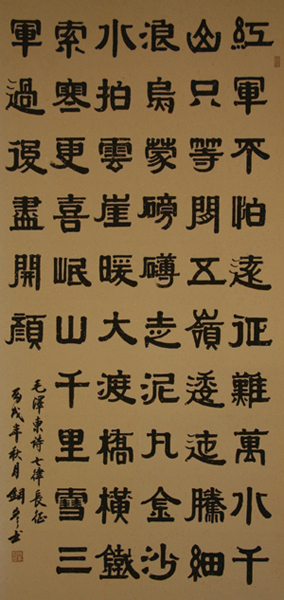 紅軍不怕遠征難萬水千
山只等閑五嶺逶迤騰細
浪烏蒙磅礴走泥丸金沙
水拍雲崖暖大渡橋橫鐵
索寒更喜岷山千里雪三
軍過後盡開顏
毛澤東詩七律長征
丙戌年秋月